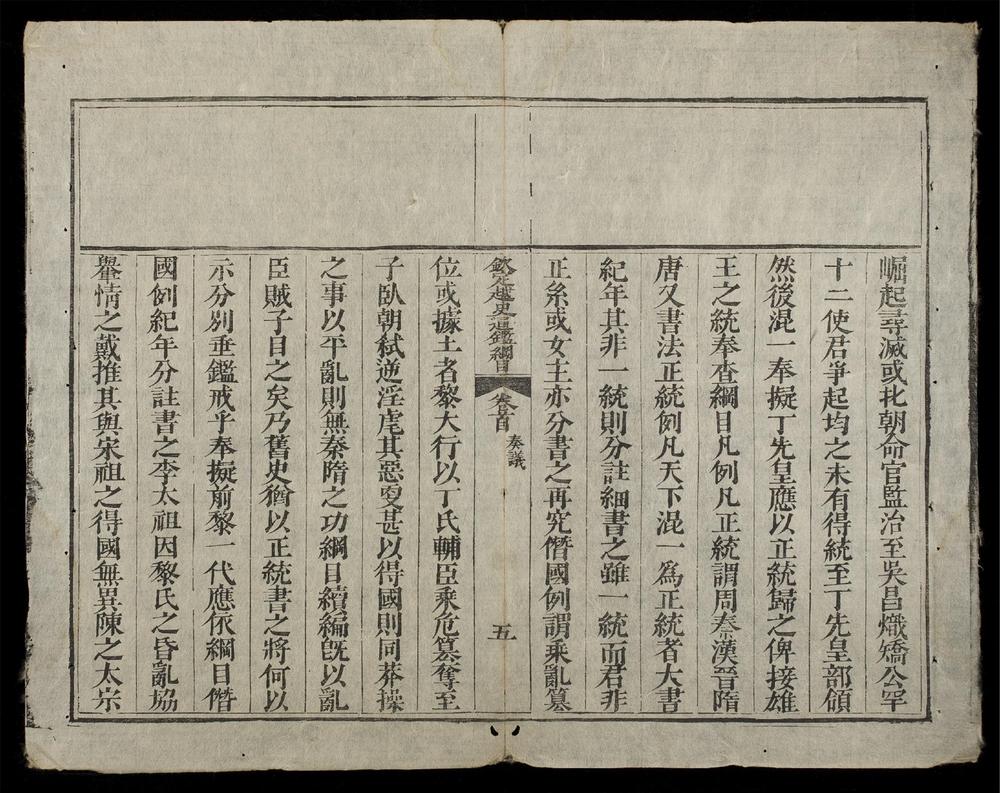 崛起尋滅或北朝命官監治至吳昌熾矯公罕
十二使君爭起均之未有得統至丁先皇部領
然後混一奉擬丁先皇應以正統歸之俾接雄
王之統奉查綱目凡例凡正統謂周秦漢晉隋
唐又書法正統例凡天下混一爲正統者大書
紀年其非一統則分註細書之雖一統而君非
正系或女主亦分書之再究僭國例謂乘亂篡
欽定越史通鑑綱目 卷首 奏議 五
位或據土者黎大行以丁氏輔臣乘危篡奪至
子臥朝弑逆淫虐其惡更甚以得國則同莽操
之事以平亂則無秦隋之功綱目續編旣以亂
臣賊子目之矣乃舊史猶以正統書之將何以
示分別垂鑑戒乎奉擬前黎一代應依綱目僭
國例紀年分註書之李太祖因黎氏之昏亂協
羣情之戴推其與宋祖之得國無異陳之太宗